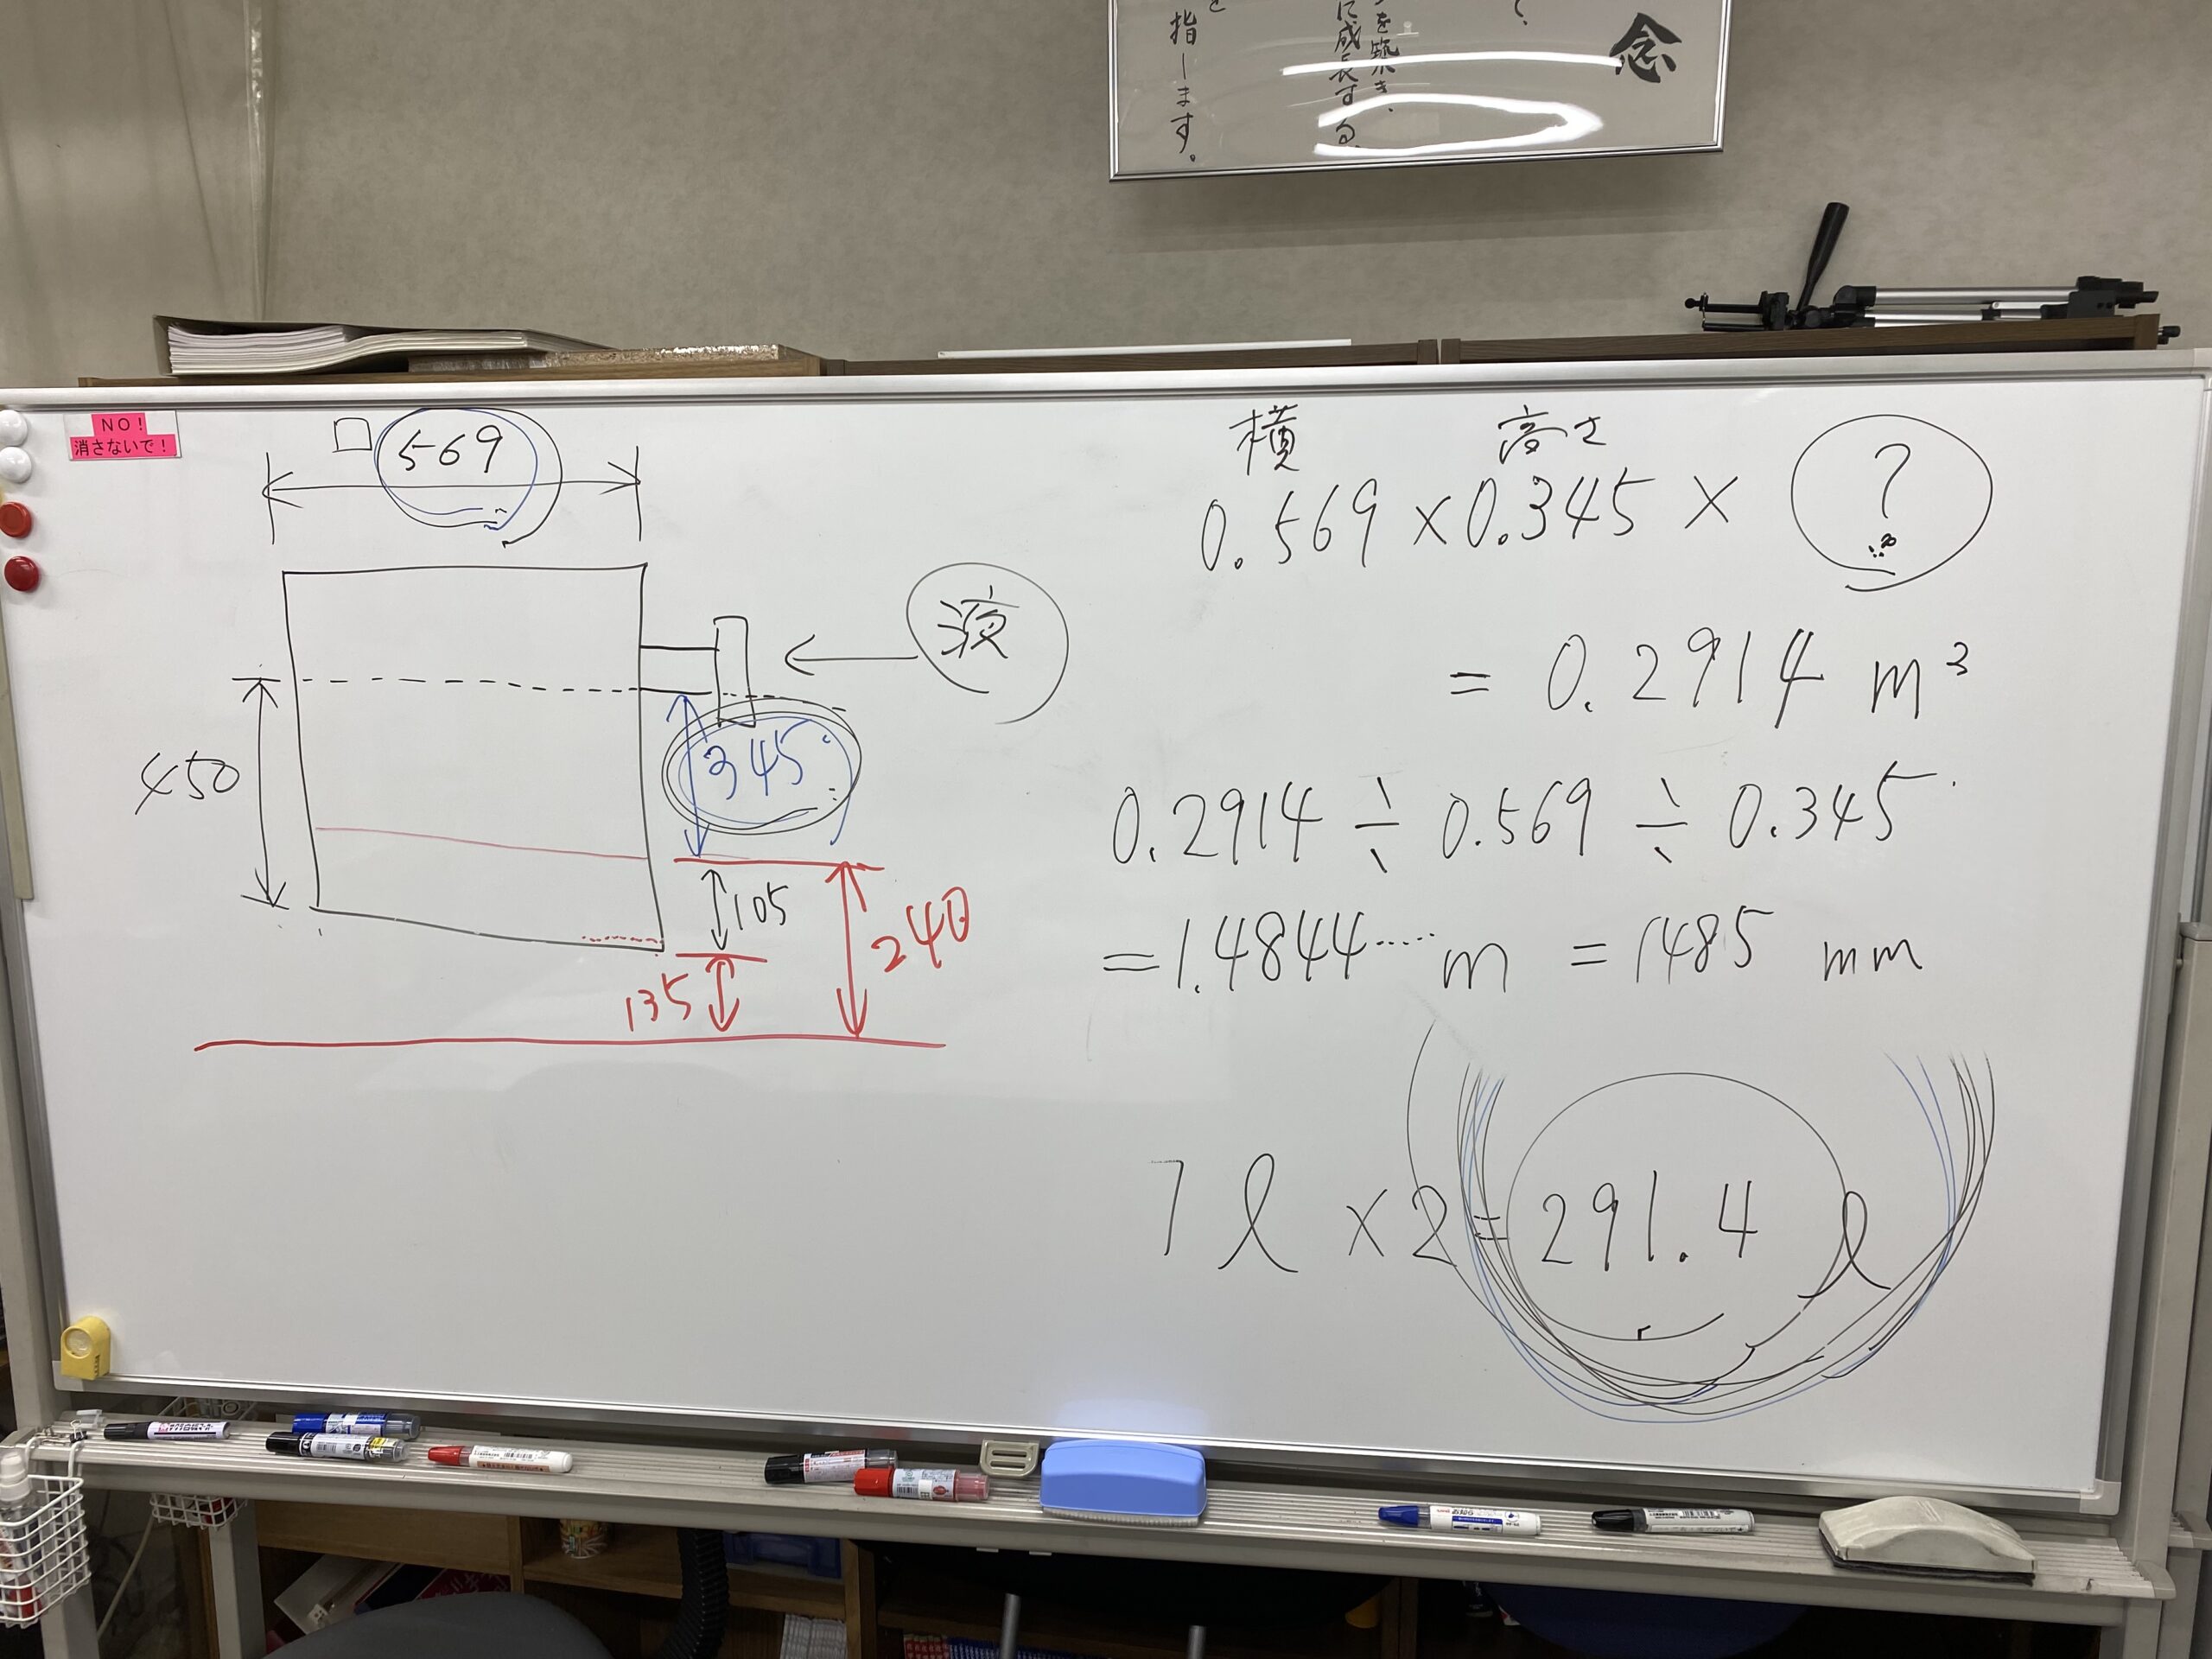 念
を築き、
に成長する
指します。
NO!
消さないで!
□ 569
液
450
345
105
240
135
横 高さ
0.569 × 0.345 × ?
= 0.2914 m³
0.2914 ÷ 0.569 ÷ 0.345
=1.4844····· m = 1485 mm
7 ℓ × 2 = 291.4 ℓ